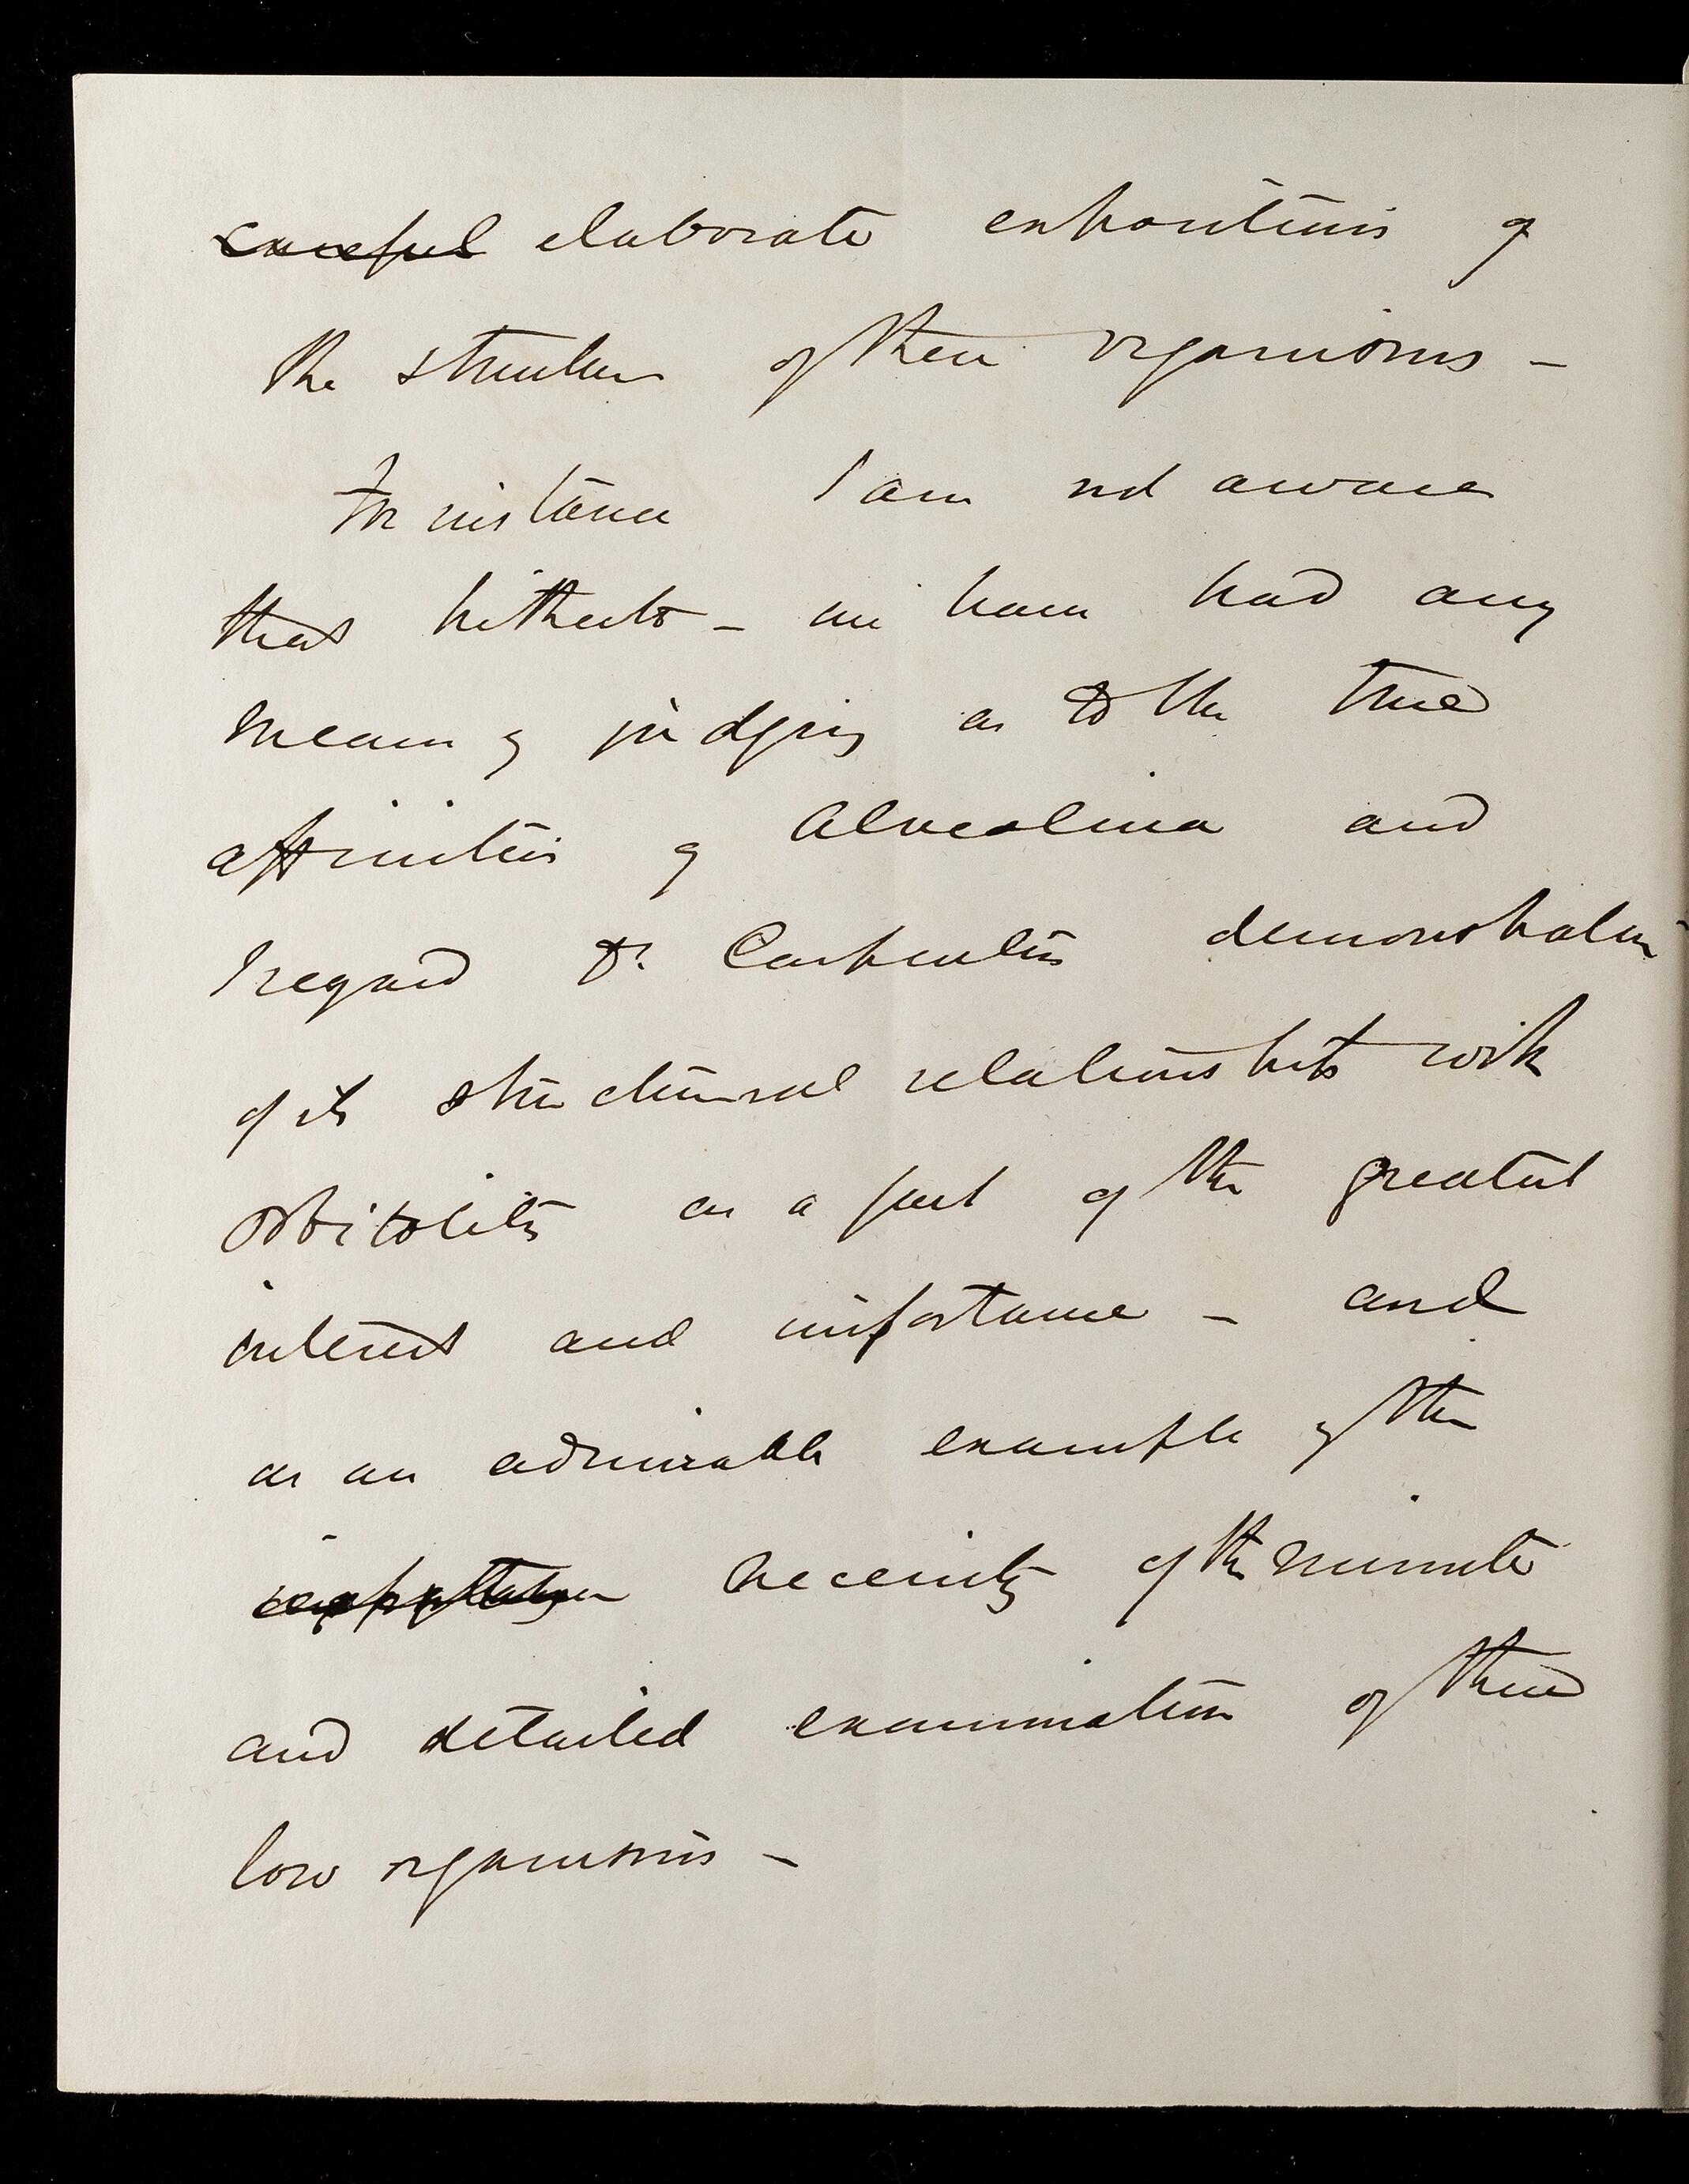 careful elaborate expositions of
the structure of these organisms -
For instance I am not aware
that hitherto - we have had any
means of judging as to the true
affinities of Alveolina and
I regard Dr. Carpenter's demonstration
of its structural relationships with
Orbitolites as a fact of the greatest
interest and importance - and
as an admirable example of the
necessity of the minute
and detailed examination of these
low organisms -